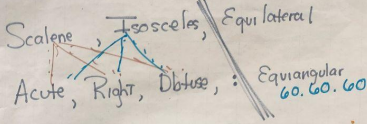 Scalene, Isosceles, Equilateral
Acute, Right, Obtuse, : Equiangular
60.60.60